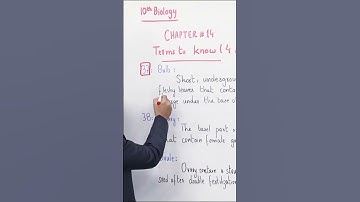 10th Biology
CHAPTER # 14
Terms to know ( 4
Bulb :
Short, undergro
fleshy leaves that conta
under the base o
38
The basel part o
that contain female g
Ovary contain a s
seed after double fertilization